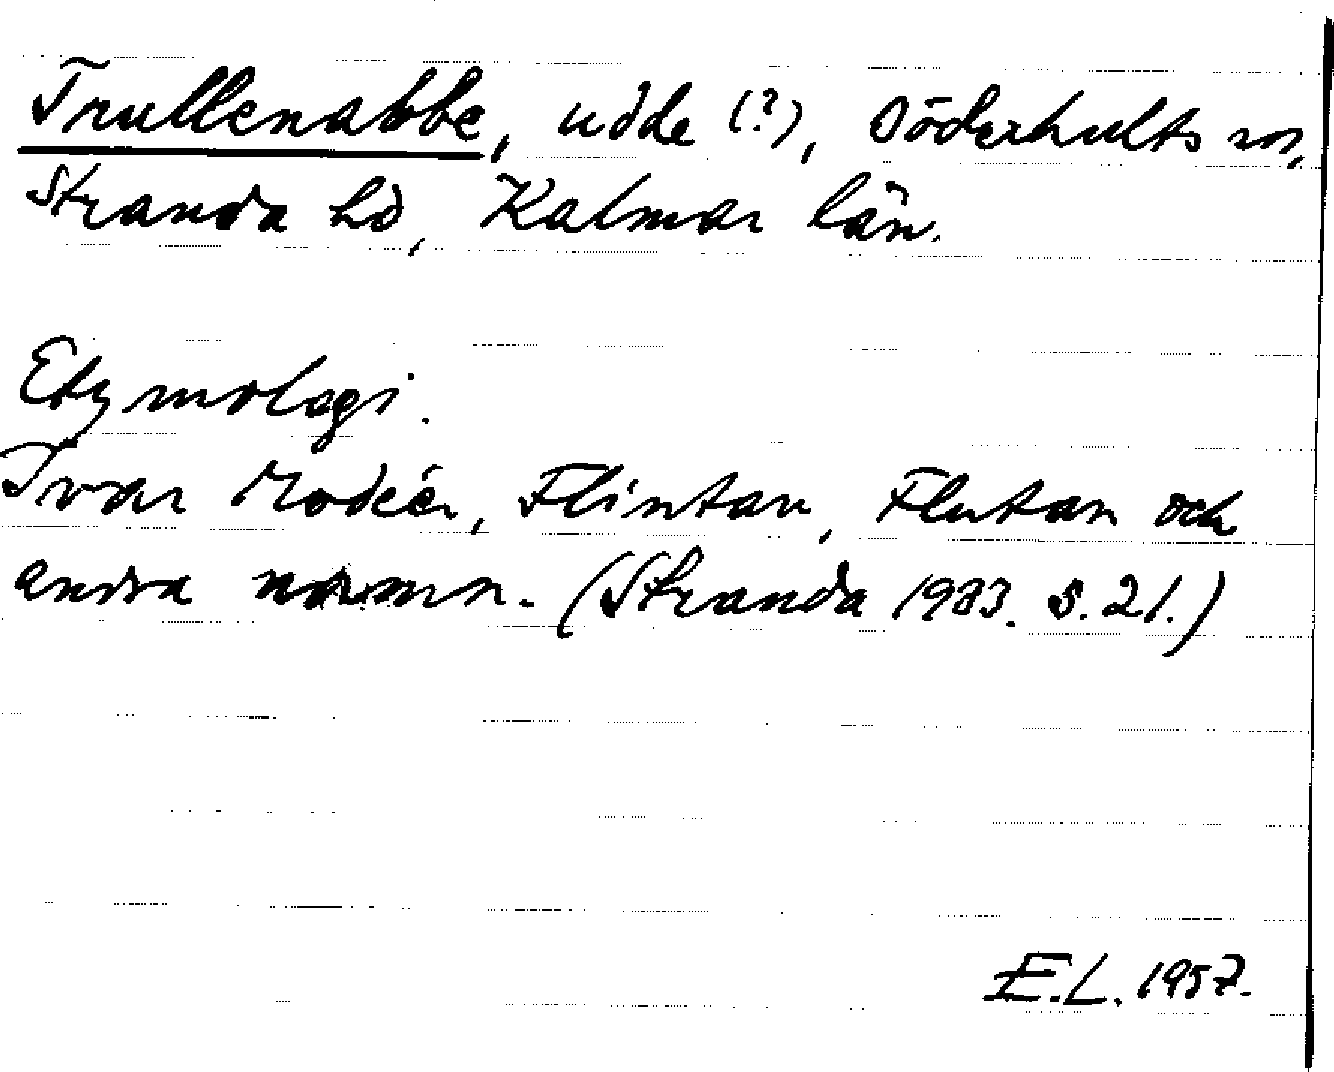 Trullenabbe, udde (?), Söderhults sn,
Stranda hd, Kalmar län.
Etymologi.
Ivar Modéer, Flintan, Flutan och
andra namn. (Stranda 1933. s. 21.)
E.L. 1957.